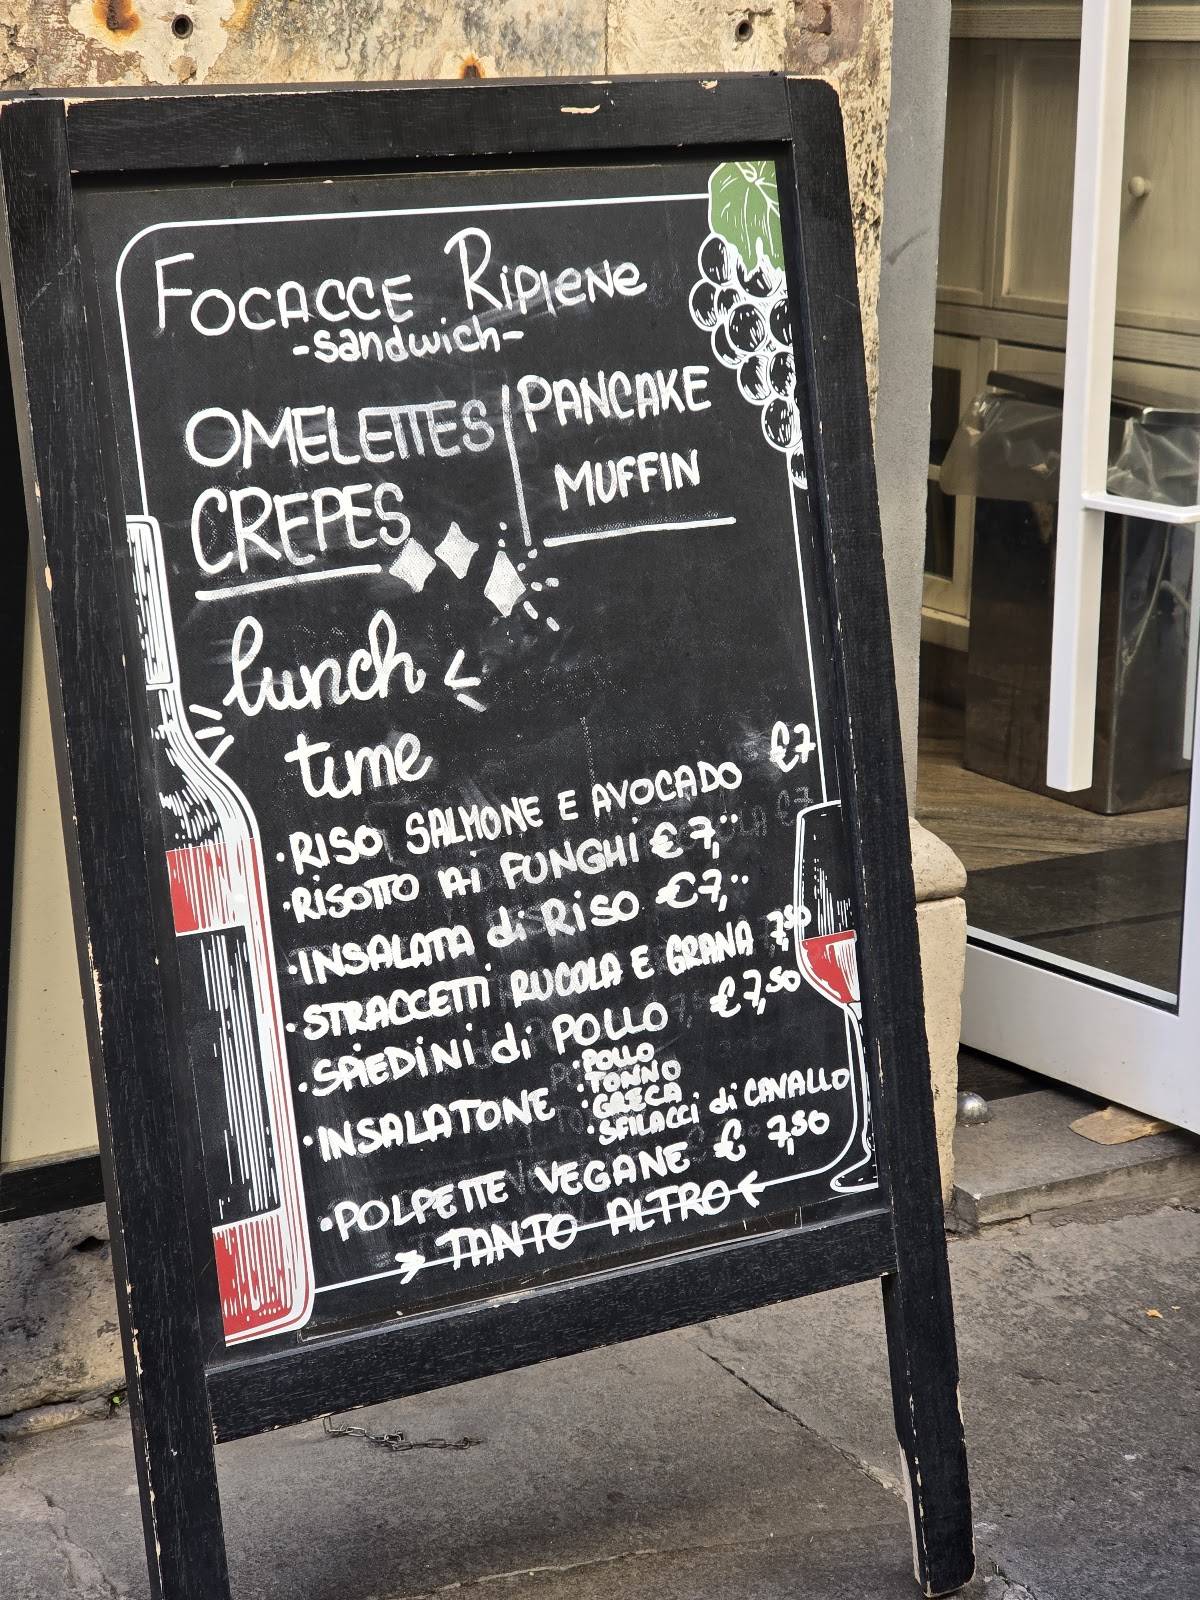 FOCACCE RIPIENE
-sandwich-
OMELETTES
CREPES
PANCAKE
MUFFIN
lunch
time
·RISO SALMONE E AVOCADO €7
·RISOTTO Ai FUNGHI €7,..
·INSALATA di RISO €7,..
·STRACCETTI RUCOLA E GRANA 7,50
·SPIEDINI di POLLO €7,50
·INSALATONE
·POLLO
·TONNO
·GRECA
·SFILACCI di CAVALLO
·POLPETTE VEGANE € 7,50
TANTO ALTRO